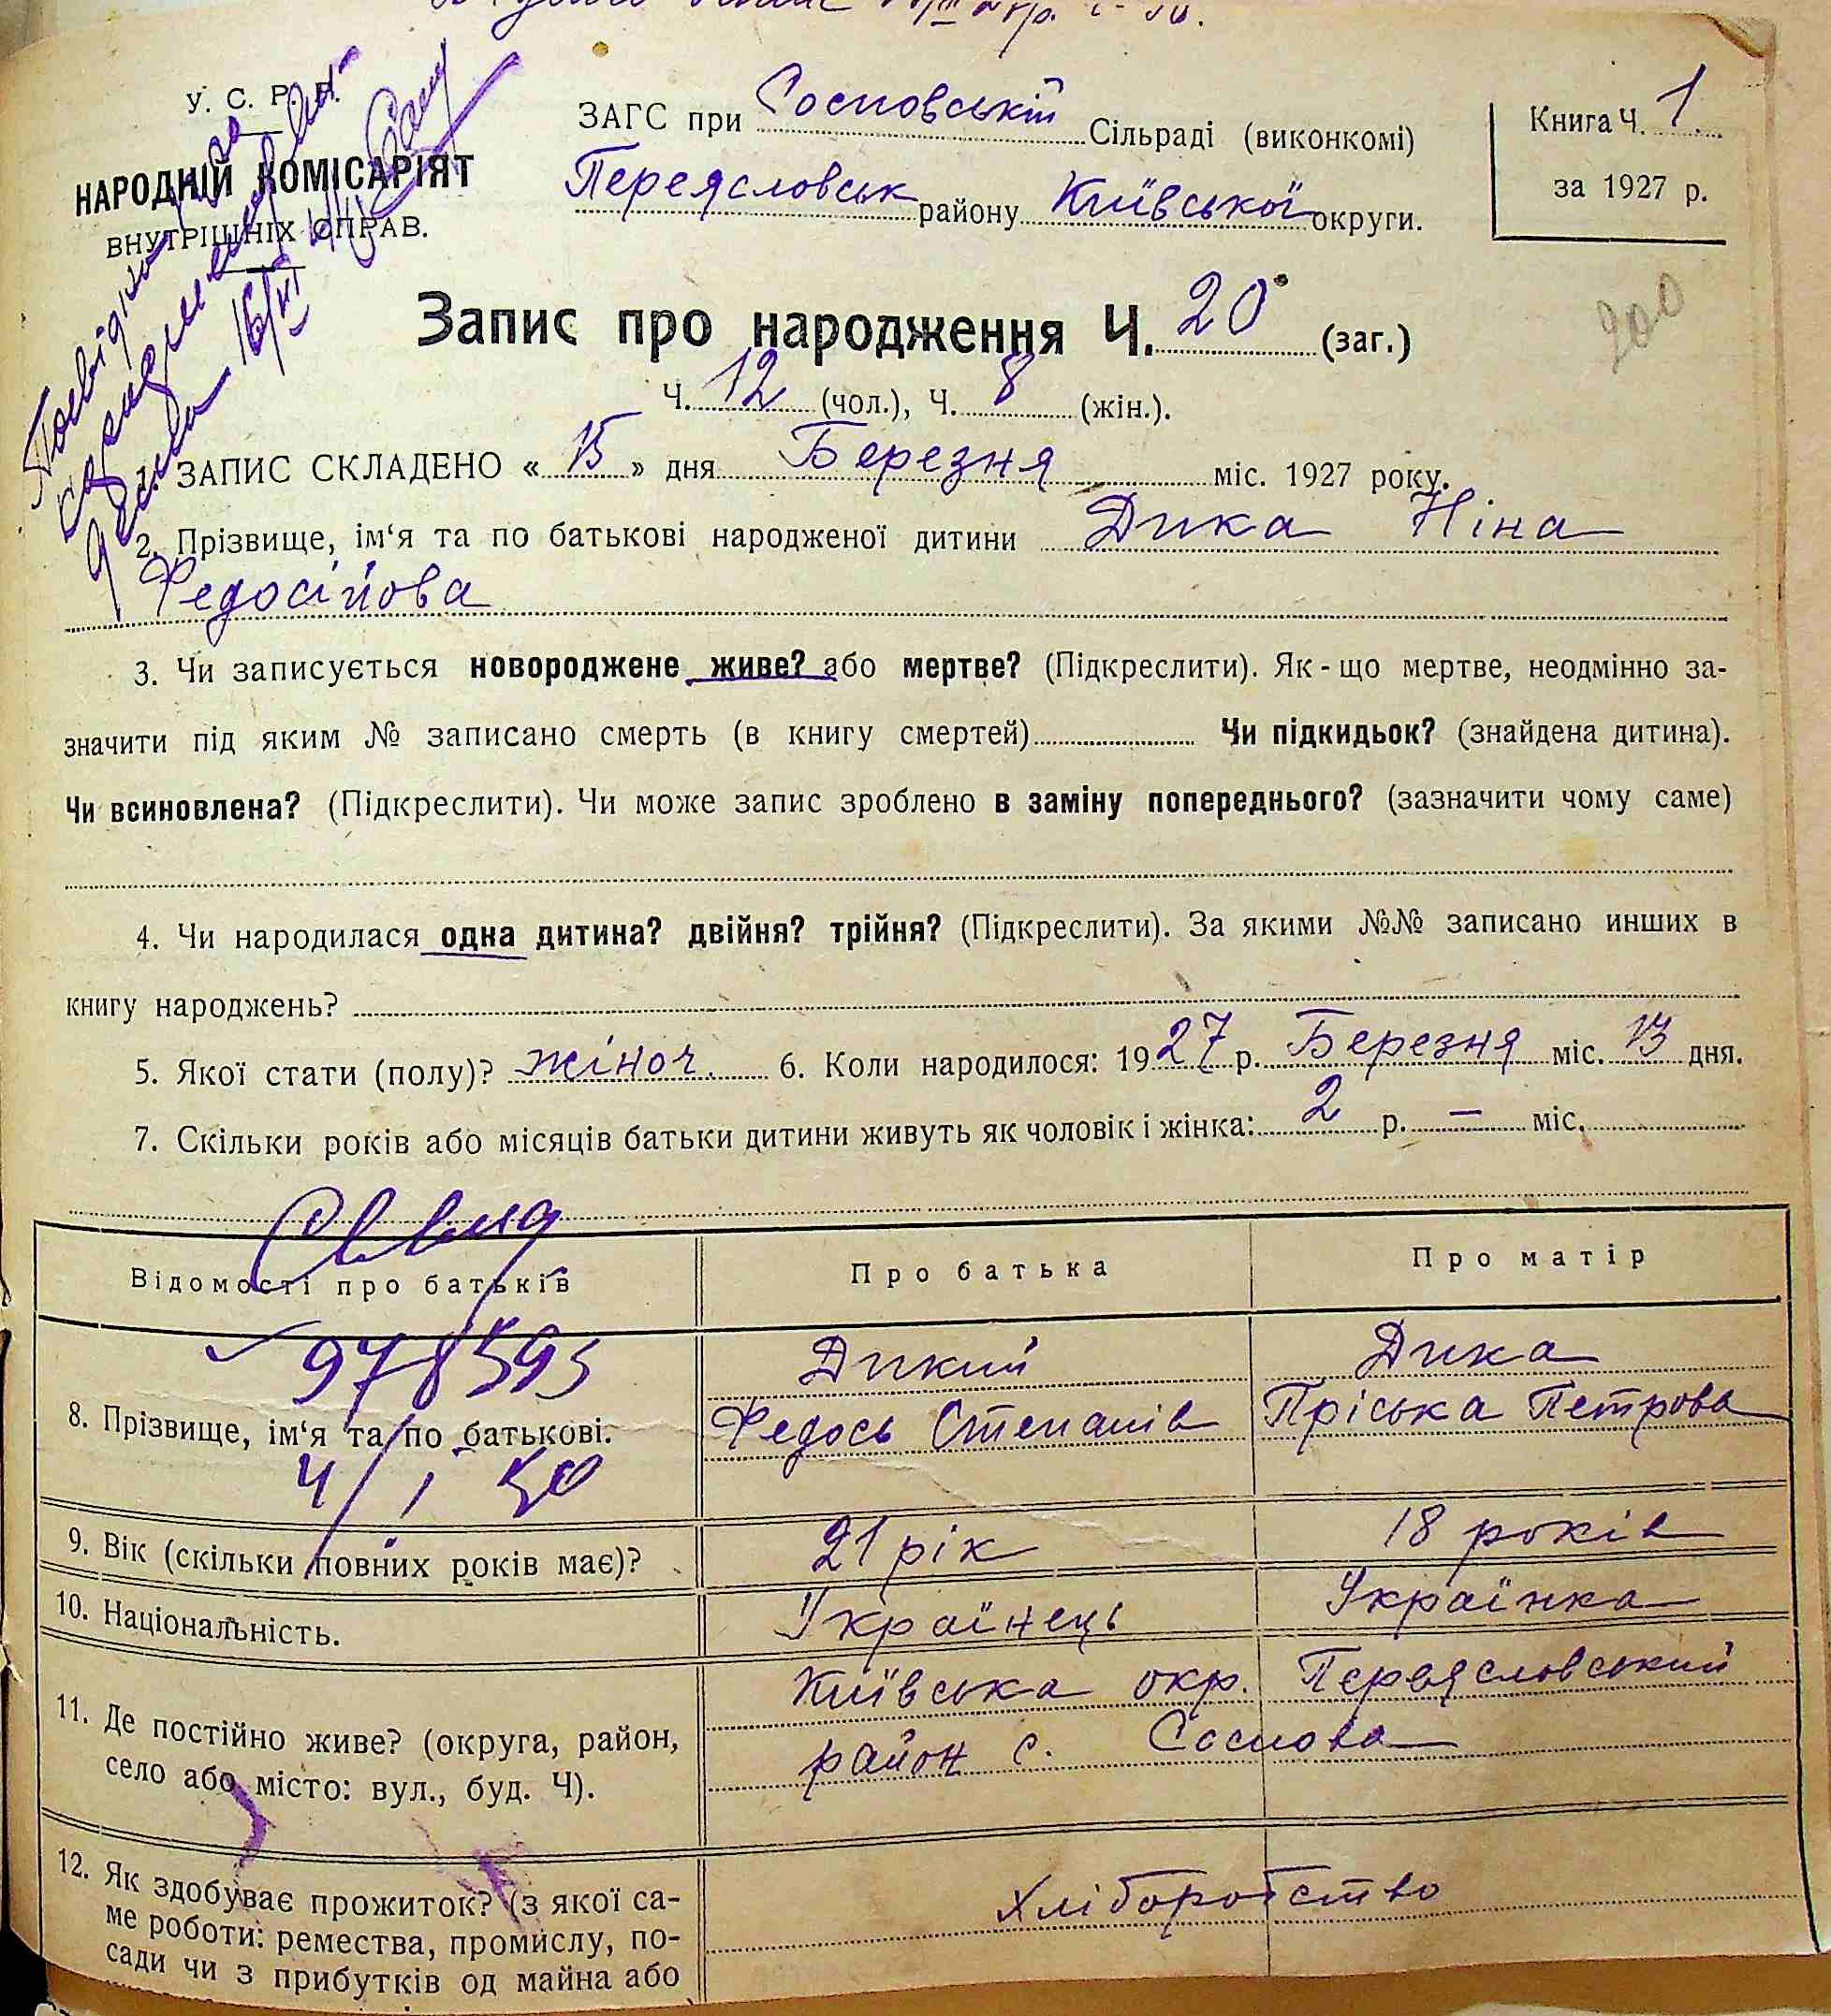 У. С. Р. Р.
НАРОДНІЙ КОМІСАРІЯТ
ВНУТРІШНІХ СПРАВ.
ЗАГС при Сосновській Сільраді (виконкомі)
Переясловськ району Київської округи.
Книга Ч. 1
за 1927 р.
Запис про народження Ч. 20 (заг.)
200
Ч. 12 (чол.), Ч. 8 (жін.).
1. ЗАПИС СКЛАДЕНО « 15 » дня Березня міс. 1927 року.
2. Прізвище, ім‘я та по батькові народженої дитини Дика Ніна
Федосійова
3. Чи записується новороджене живе? або мертве? (Підкреслити). Як-що мертве, неодмінно за-
значити під яким № записано смерть (в книгу смертей) Чи підкидьок? (знайдена дитина).
Чи всиновлена? (Підкреслити). Чи може запис зроблено в заміну попереднього? (зазначити чому саме)
4. Чи народилася одна дитина? двійня? трійня? (Підкреслити). За якими №№ записано инших в
книгу народжень?
5. Якої стати (полу)? жіноч. 6. Коли народилося: 1927 р. Березня міс. 13 дня.
7. Скільки років або місяців батьки дитини живуть як чоловік і жінка: 2 р. — міс.
Відомості про батьків Про батька Про матір
978593
Дикий Дика
8. Прізвище, ім‘я та по батькові. Федось Степанів Пріська Петрова
4/I 50
9. Вік (скільки повних років має)? 21 рік 18 років
10. Національність. Українець Українка
11. Де постійно живе? (округа, район,
село або місто: вул., буд. Ч).
Київська окр. Переясловський
район с. Соснова
12. Як здобуває прожиток? (з якої са-
ме роботи: ремества, промислу, по-
сади чи з прибутків од майна або
Хліборобство